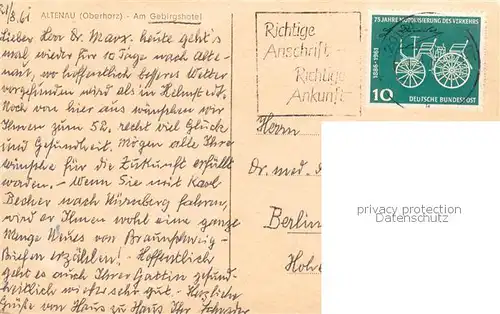 21/8.61
ALTENAU (Oberharz) - Am Gebirgshotel
Lieber Herr Dr. Marx, heute geht's
mal wieder für 10 Tage nach Alte-
nau, wo hoffentlich besseres Wetter
vorgefunden wird als in Helmstedt.
Noch von hier aus wünschen wir
Ihnen zum 52. recht viel Glück
und Gesundheit. Mögen alle Ihre
Wünsche für die Zukunft erfüllt
werden. - Wenn Sie mit Karl
Becher nach Nürnberg fahren,
wird er Ihnen wohl eine ganze
Menge Neues von Braunschweig-
erzählen! - Hoffentlich
geht es auch Ihrer Gattin gesund-
heitlich wieder sehr gut. - Herzliche
Grüße von Haus zu Haus Ihr
Richtige
Anschrift
Richtige
Ankunft
75 JAHRE MOTORISIERUNG DES VERKEHRS
1886-1961
10
DEUTSCHE BUNDESPOST
Herrn
Dr. med. d
Berlin
Hohe
privacy protection
Datenschutz